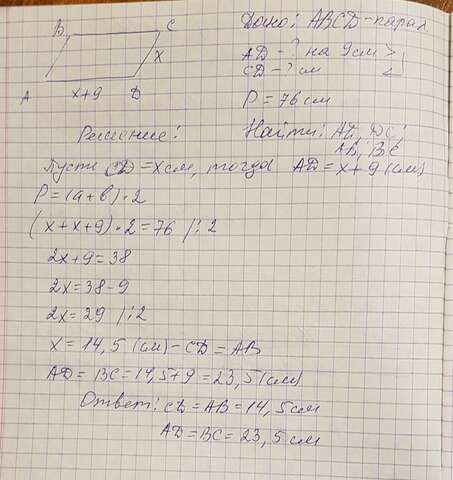 B C
x
A x+9 D
Дано: ABCD - парал
AD - ? на 9 см >
CD - ? см
P = 76 см
Найти: AD, DC,
AB, BC
Решение:
Пусть CD = x см, тогда AD = x + 9 (см)
P = (a + b) · 2
(x + x + 9) · 2 = 76 /: 2
2x + 9 = 38
2x = 38 - 9
2x = 29 /: 2
x = 14,5 (см) - CD = AB
AD = BC = 14,5 + 9 = 23,5 (см)
Ответ: CD = AB = 14,5 см
AD = BC = 23,5 см